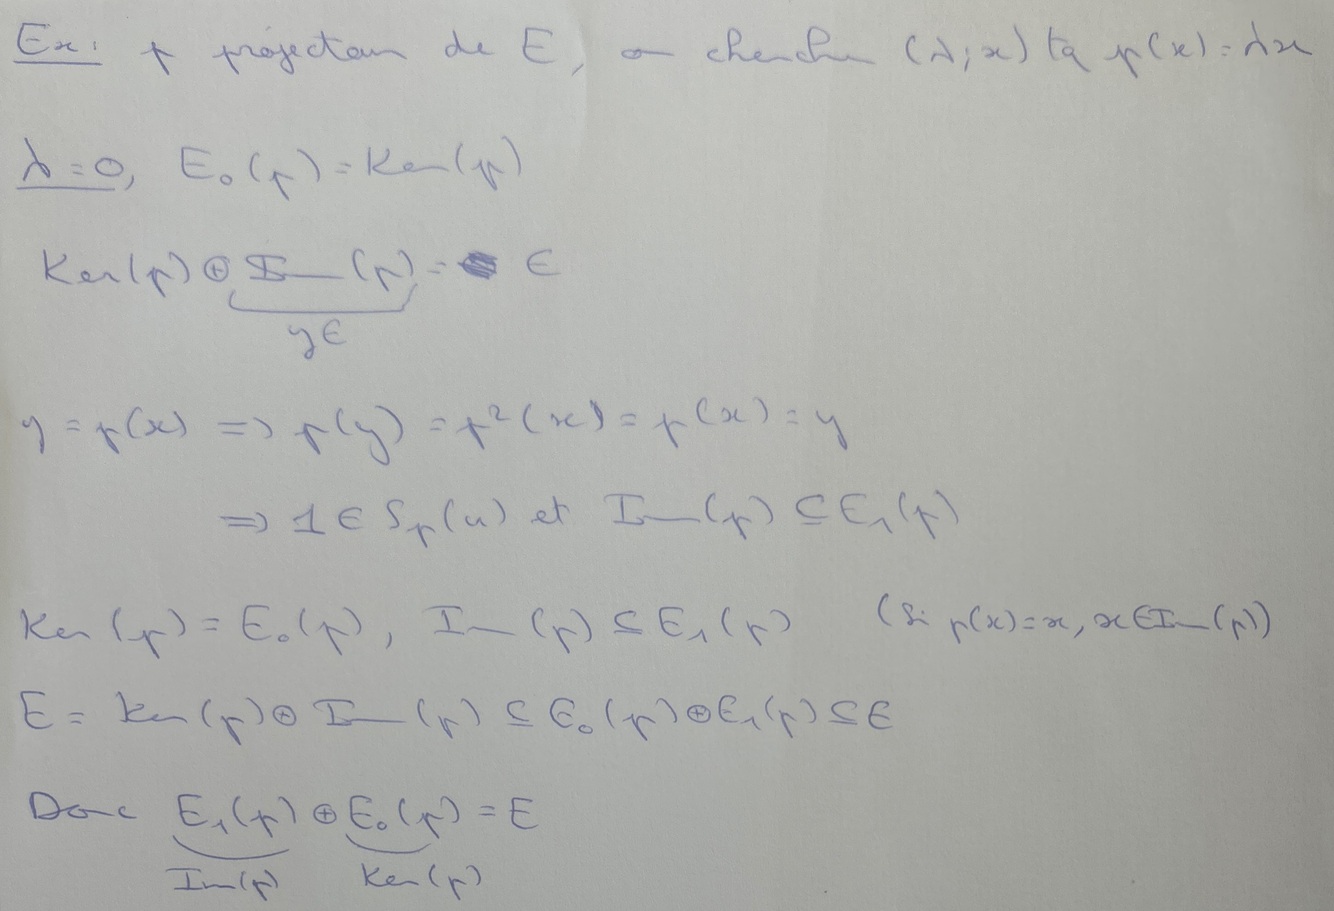 Ex: p projecteur de E, on cherche (λ;x) tq p(x)=λx
λ=0, E₀(p)=Ker(p)
Ker(p)⊕Im(p)= E
y∈
y=p(x) => p(y)=p²(x)=p(x)=y
=> 1∈Sp(u) et Im(p)⊆E₁(p)
Ker(p)=E₀(p), Im(p)⊆E₁(p) (Si p(x)=x, x∈Im(p))
E= Ker(p)⊕Im(p)⊆E₀(p)⊕E₁(p)⊆E
Donc E₁(p)⊕E₀(p)=E
Im(p) Ker(p)